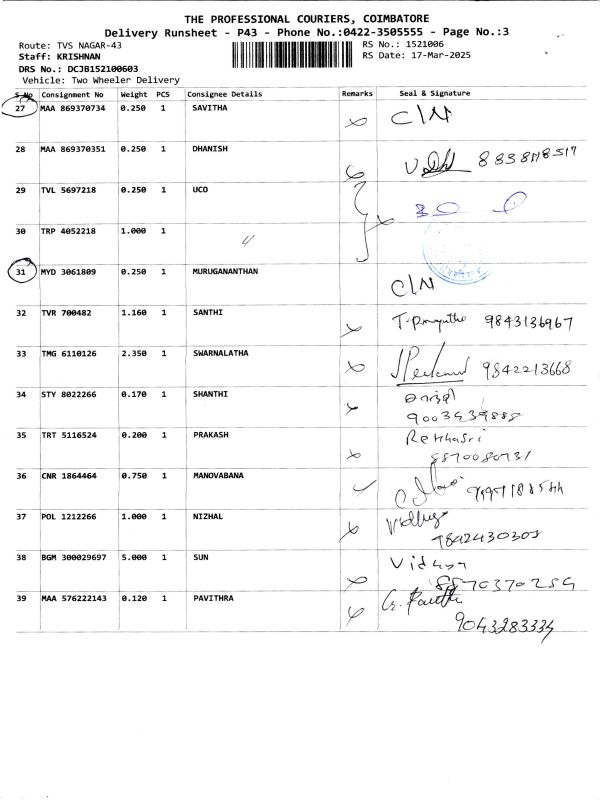 THE PROFESSIONAL COURIERS, COIMBATORE
Delivery Runsheet - P43 - Phone No.:0422-3505555 - Page No.:3
Route: TVS NAGAR-43 RS No.: 1521006
Staff: KRISHNAN RS Date: 17-Mar-2025
DRS No.: DCJB152100603
Vehicle: Two Wheeler Delivery
S.No Consignment No Weight PCS Consignee Details Remarks Seal & Signature
27 MAA 869370734 0.250 1 SAVITHA C/N
28 MAA 869370351 0.250 1 DHANISH
29 TVL 5697218 0.250 1 UCO
30 TRP 4052218 1.000 1
31 MYD 3061809 0.250 1 MURUGANANTHAN C/N
32 TVR 700482 1.160 1 SANTHI 9843136967
33 TMG 6110126 2.350 1 SWARNALATHA 9842213668
34 STY 8022266 0.170 1 SHANTHI
35 TRT 5116524 0.200 1 PRAKASH
8870080731
36 CNR 1864464 0.750 1 MANOVABANA
37 POL 1212266 1.000 1 NIZHAL
9842430303
38 BGM 300029697 5.000 1 SUN Vidhya
8870370254
39 MAA 576222143 0.120 1 PAVITHRA
9043283334